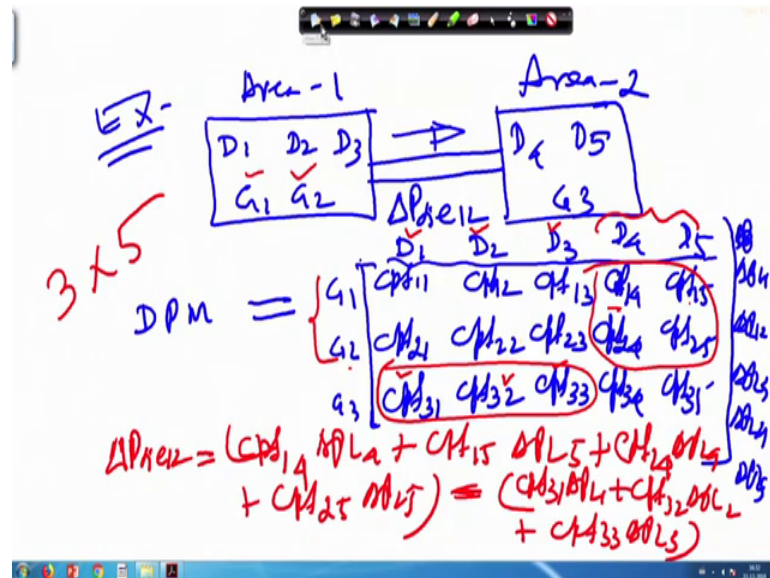 EX- Area-1 Area-2
D1 D2 D3 D4 D5
G1 G2 G3
ΔPtie12
3×5
D1 D2 D3 D4 D5
DPM =
G1 cpf11 cpf12 cpf13 cpf14 cpf15
G2 cpf21 cpf22 cpf23 cpf24 cpf25
G3 cpf31 cpf32 cpf33 cpf34 cpf35
ΔPtie12 = (cpf14 ΔPL4 + cpf15 ΔPL5 + cpf24 ΔPL4
+ cpf25 ΔPL5) - (cpf31 ΔPL1 + cpf32 ΔPL2
+ cpf33 ΔPL3)